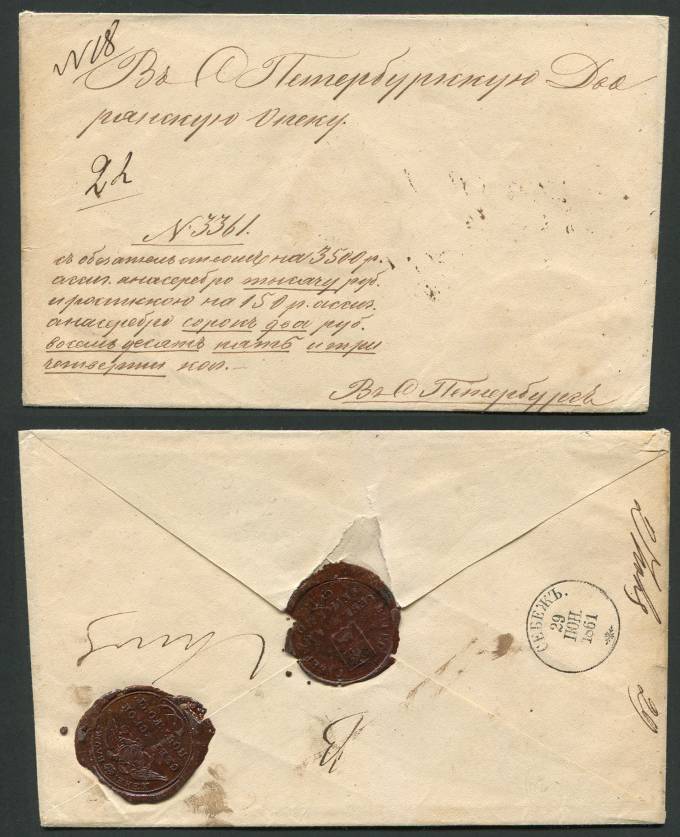 N 18
Въ С Петербургскую Дво
рянскую Опеку.
N. 3361.
съ обязательствомъ на 3500 р.
ассиг. анасеребро тысячу руб.
и роспискою на 150 р. ассиг.
анасеребро сорокъ два руб.
восемьдесятъ пять и три
четверти коп.
Въ С Петербургъ
СЕБЕЖЪ.
29
ІЮН.
1861